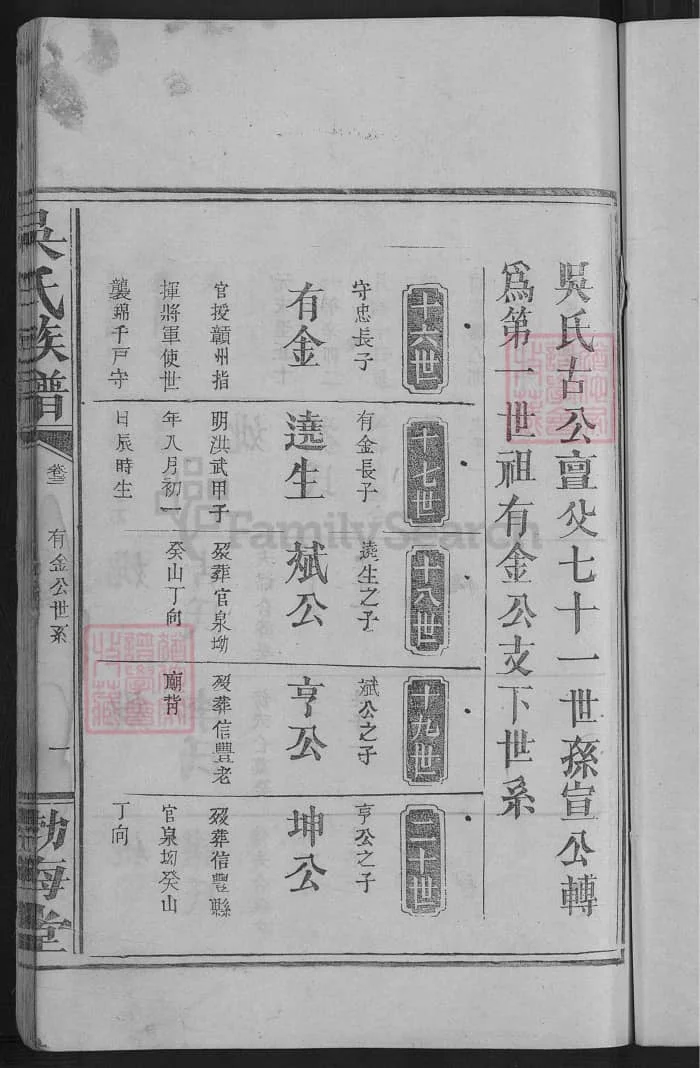 吳氏古公亶父七十一世孫宣公轉
爲第一世祖有金公支下世系
十六世
守忠長子
有金
官授贛州指
揮將軍使世
襲錦千戸守
十七世
有金長子
遶生
明洪武甲子
年八月初一
日辰時生
十八世
遶生之子
斌公
歿葬官泉坳
癸山丁向
十九世
斌公之子
亨公
歿葬信豐老
廟背
二十世
亨公之子
坤公
歿葬信豐縣
官泉坳癸山
丁向
吳氏族譜
有金公世系
一
渤海堂
FamilySearch